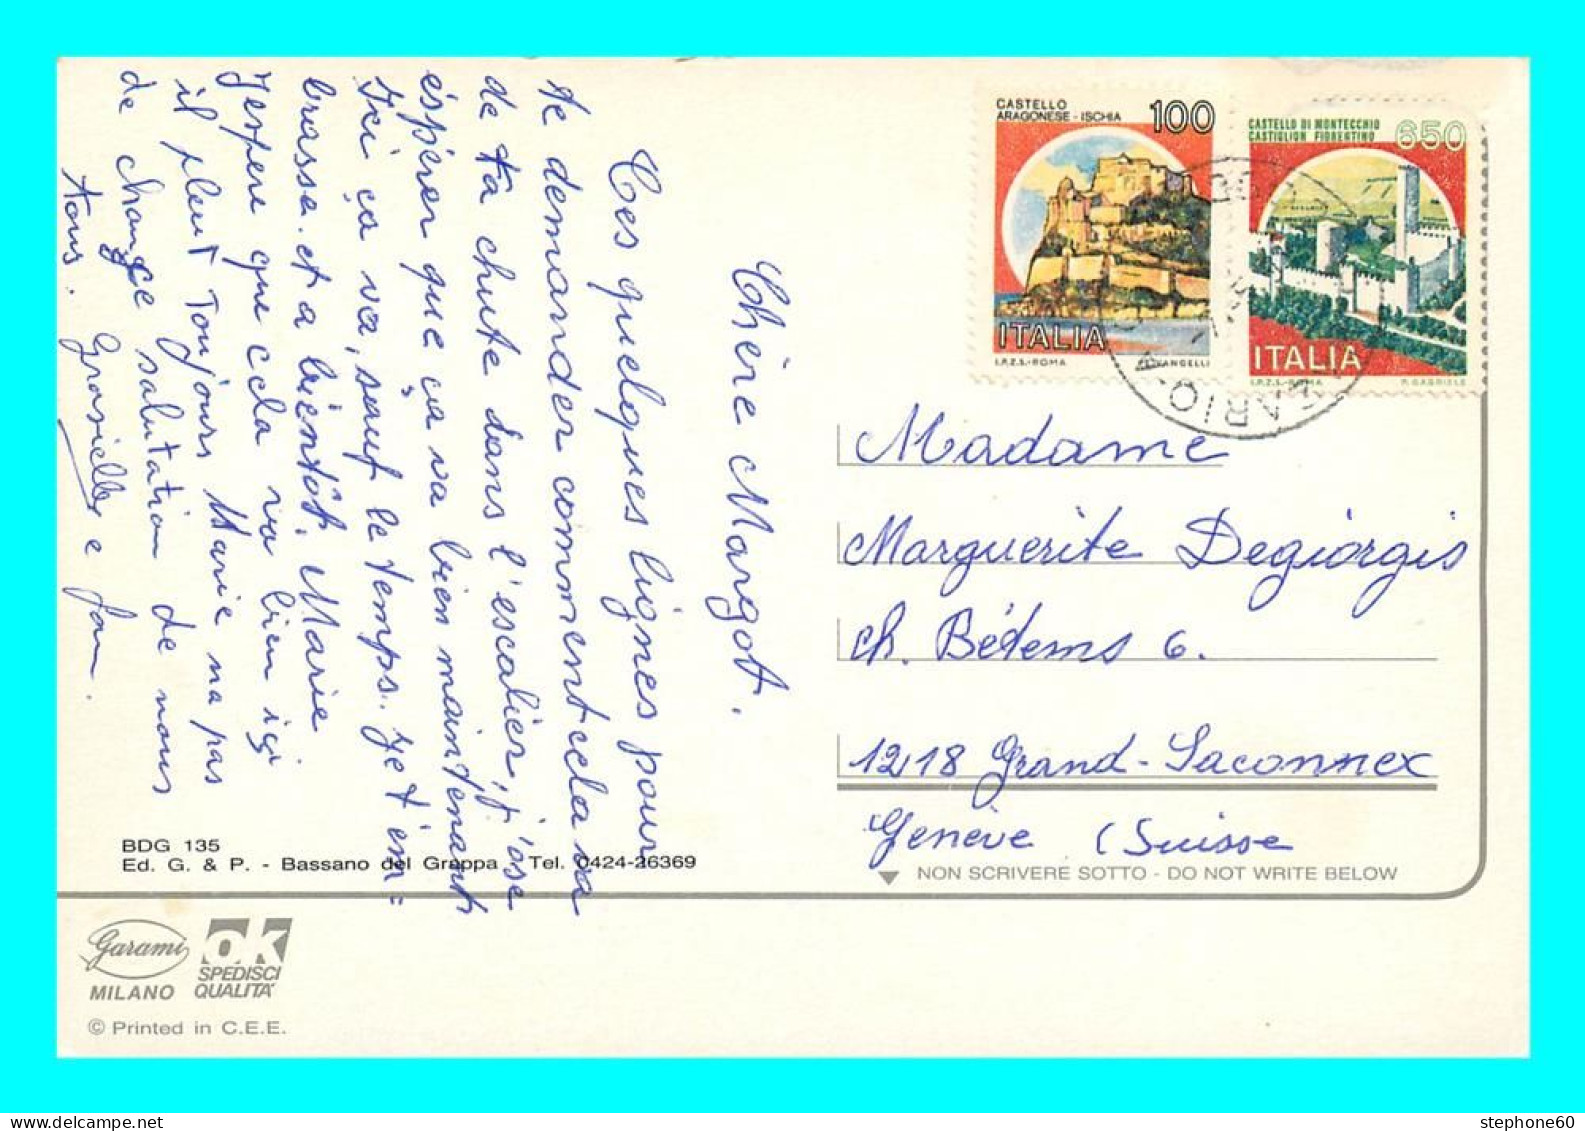 Chère Margot.
Ces quelques lignes pour
te demander comment cela va
de ta chute dans l'escalier, j'ose
éspérer que ça va bien maintenant
Ici ça va, sauf le temps. je t'em=
brasse. et a bientôt. Marie
J'espere que cela va bien içi
il pleut Toujours Marie na pas
de change salutation de nous
tous. e
CASTELLO
ARAGONESE - ISCHIA
100
ITALIA
I.P.Z.S.-ROMA
VANGELLI
CASTELLO DI MONTECCHIO
CASTIGLION FIORENTINO
650
ITALIA
I.P.Z.S.-ROMA P. GABRIELE
Madame
Marguerite Degiorgis
ch. Bétems 6.
1218 Grand-Saconnex
Genève (Suisse
NON SCRIVERE SOTTO - DO NOT WRITE BELOW
BDG 135
Ed. G. & P. - Bassano del Grappa - Tel. 0424-26369
Garami
MILANO
OK
SPEDISCI
QUALITA'
© Printed in C.E.E.
stephone60